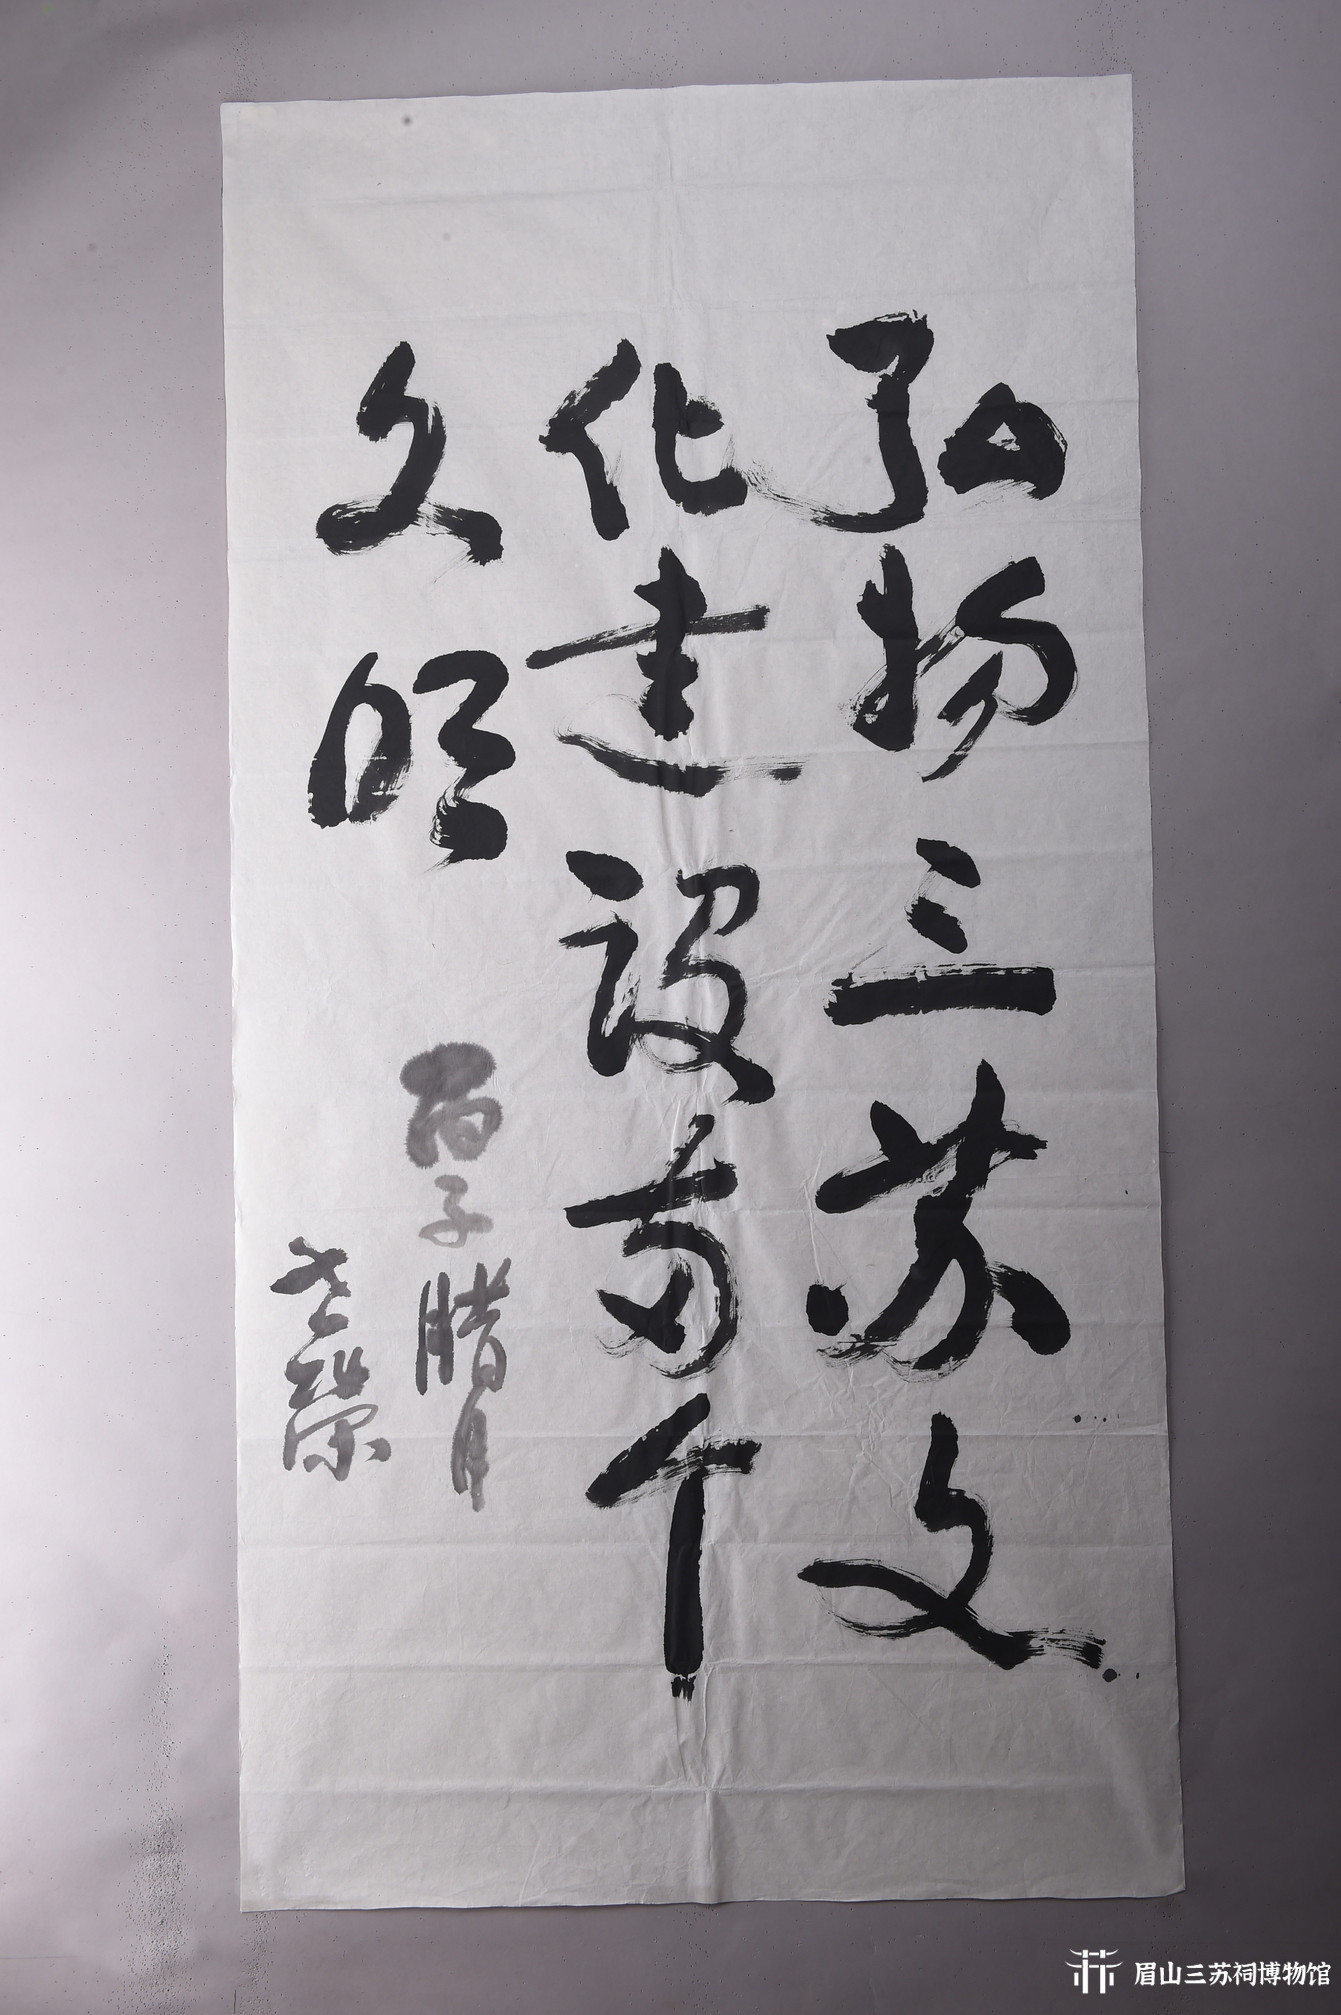 弘扬三苏文
化建设两个
文明
丙子腊月
眉山三苏祠博物馆